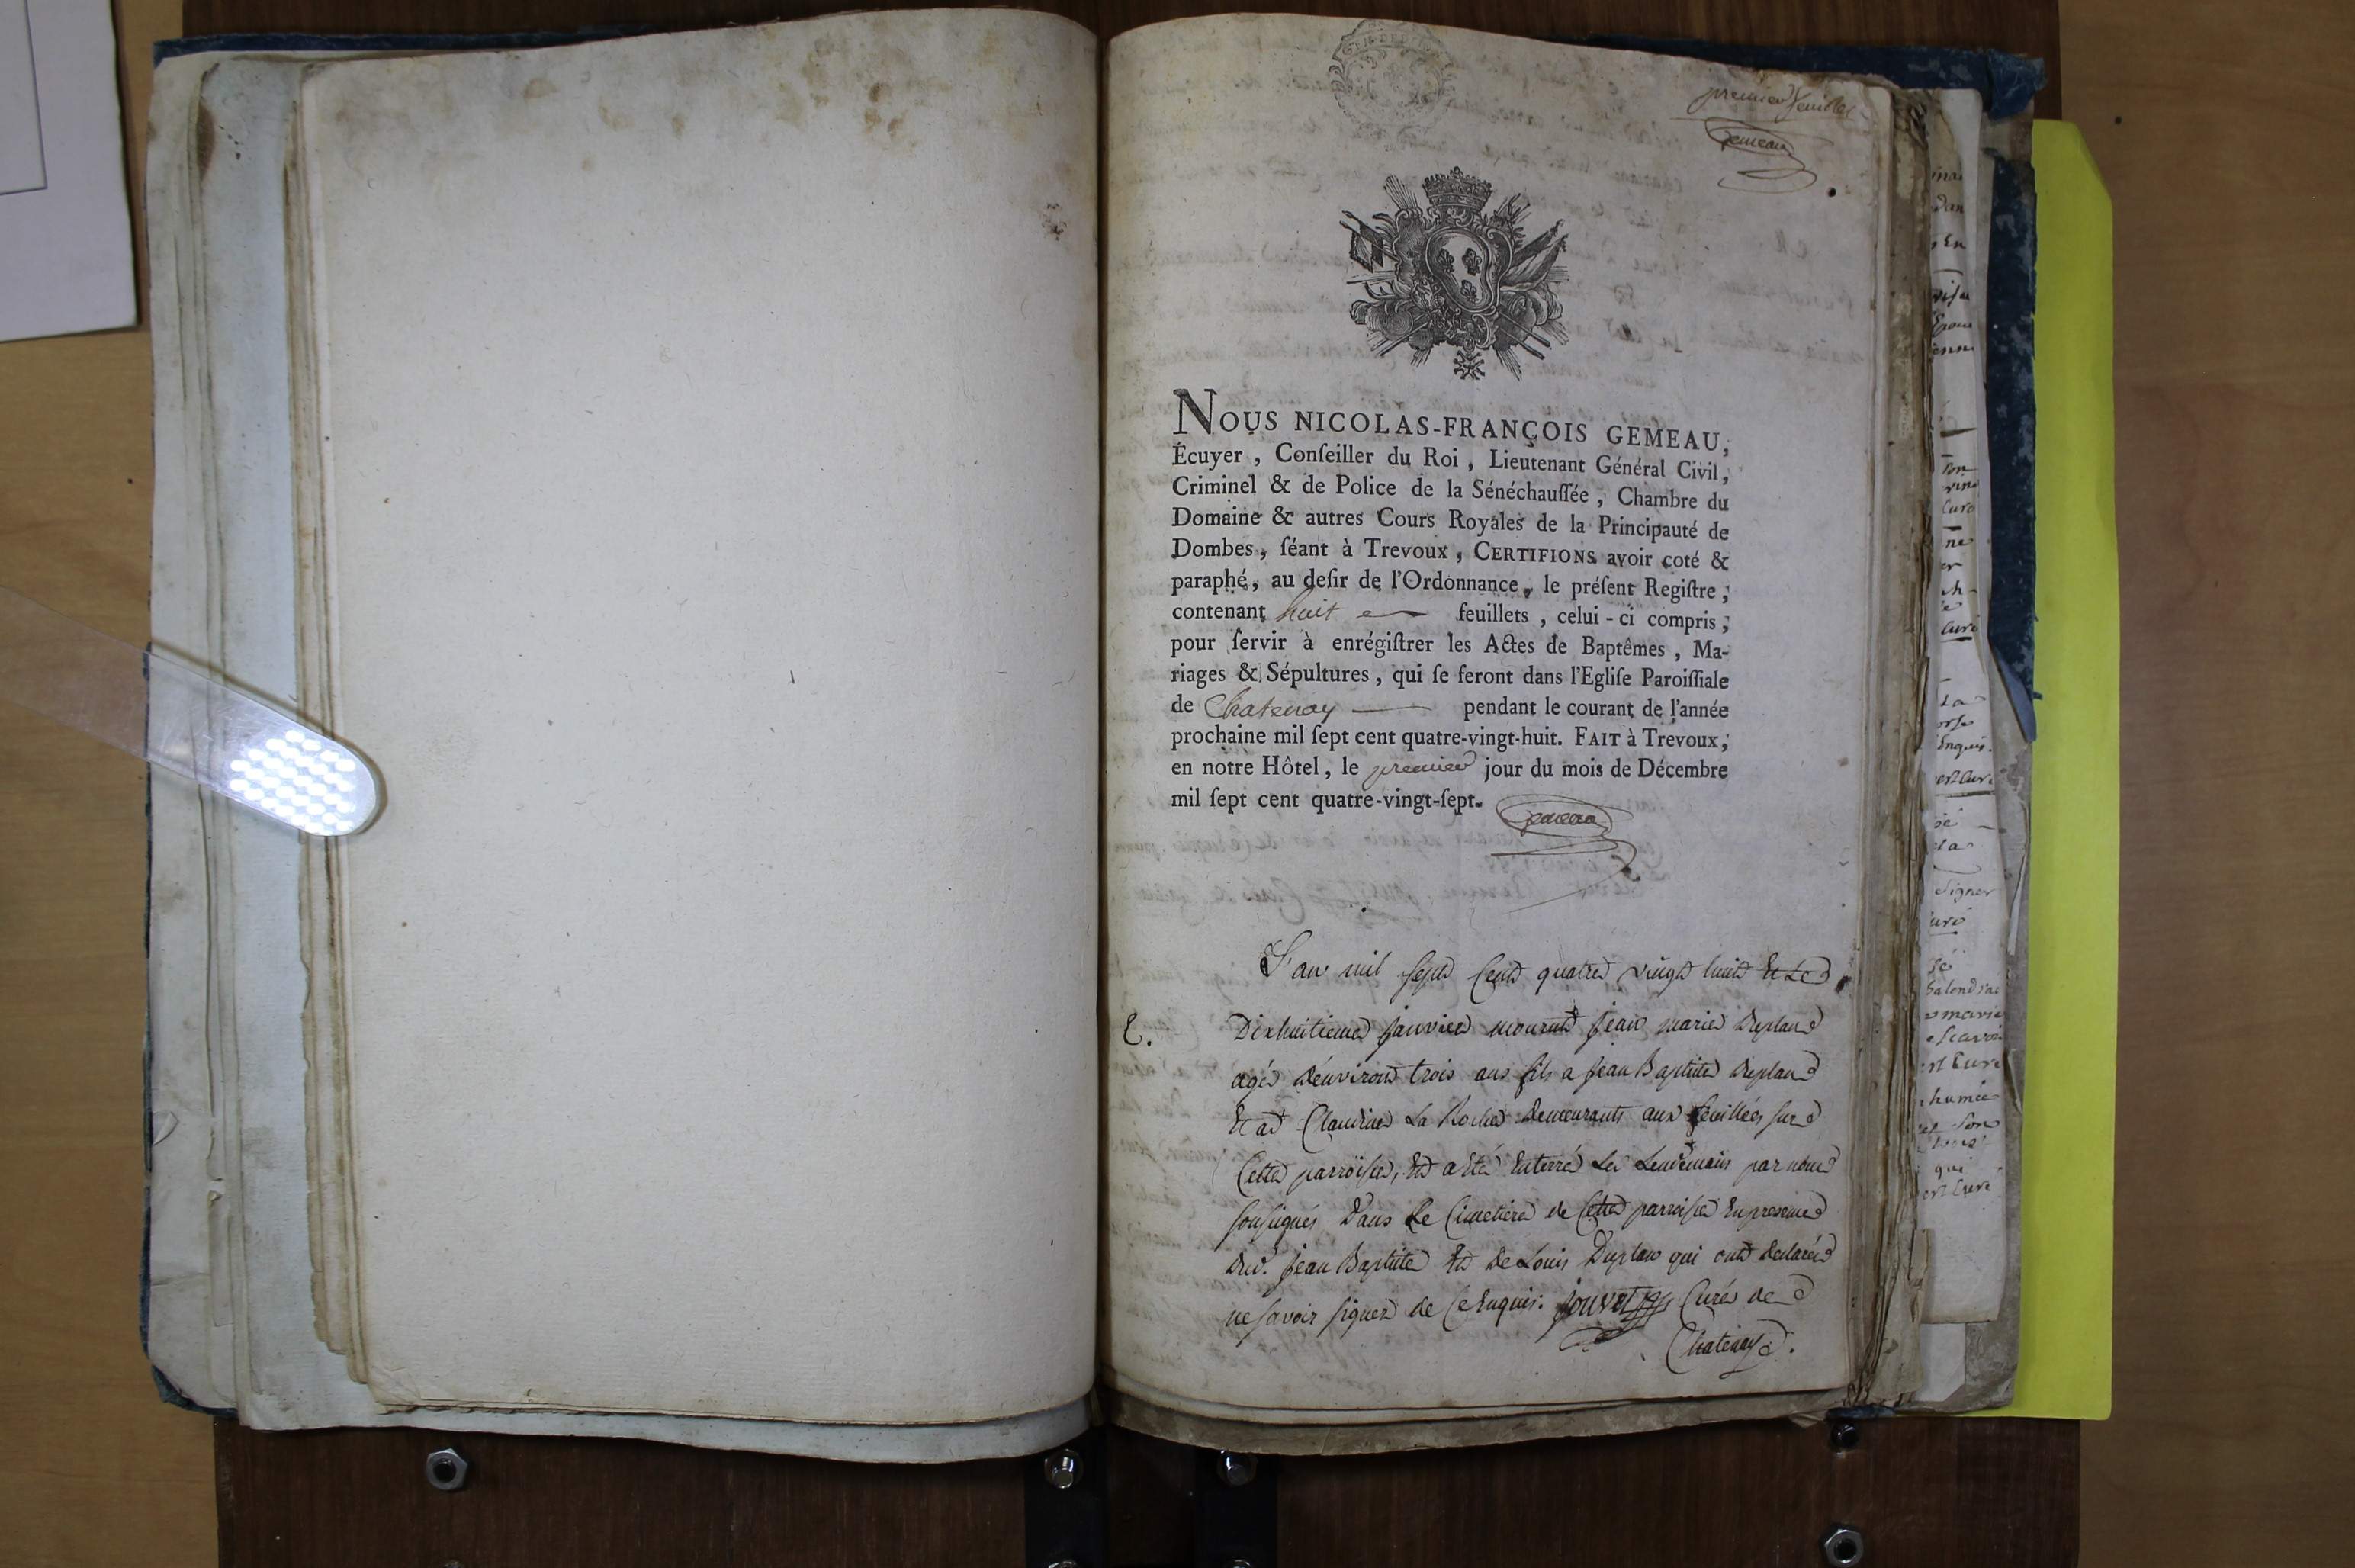 premier feuillet
Gemeau
NOUS NICOLAS-FRANÇOIS GEMEAU,
Écuyer , Conſeiller du Roi , Lieutenant Général Civil,
Criminel & de Police de la Sénéchauſſée , Chambre du
Domaine & autres Cours Royales de la Principauté de
Dombes , ſéant à Trevoux , CERTIFIONS avoir coté &
paraphé, au deſir de l'Ordonnance, le préſent Regiſtre ;
contenant huit feuillets , celui-ci compris ;
pour ſervir à enrégiſtrer les Actes de Baptêmes , Ma-
riages & Sépultures , qui ſe feront dans l'Egliſe Paroiſſiale
de Chatenay pendant le courant de l'année
prochaine mil ſept cent quatre-vingt-huit. FAIT à Trevoux,
en notre Hôtel , le premier jour du mois de Décembre
mil ſept cent quatre-vingt-ſept.
Gemeau
L'an mil sept Cent quatre vingt huit Et Le
E.
Dixhuitieme janvier mourut jean marie Duplan
agé d'environ trois ans fils a jean Baptiste Duplan
Et a Claudine La Roche Demeurants aux feuillées sur
Cette parroisse, Et a Eté Enterré Le Lendemain par nous
soussignés Dans Le Cimetiere de Cette parroisse En presence
Dud. jean Baptiste Et De Louis Duplan qui ont declaré
ne savoir signer de Ce Enquis. jouvet Curé de
Chatenay.